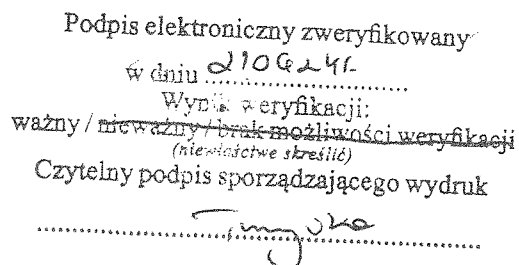 Podpis elektroniczny zweryfikowany
w dniu
Wynik weryfikacji:
ważny / nieważny / brak możliwości weryfikacji
(niewłaściwe skreślić)
Czytelny podpis sporządzającego wydruk